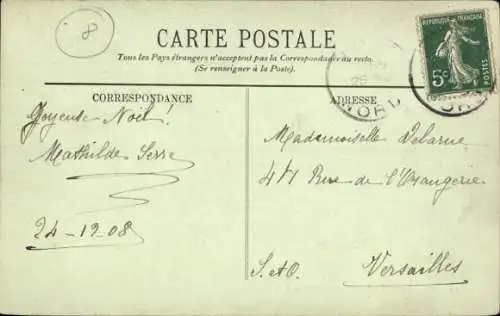 8
CARTE POSTALE
Tous les Pays étrangers n'acceptent pas la Correspondance au recto.
(Se renseigner à la Poste).
CORRESPONDANCE
ADRESSE
Joyeuse Noël!
Mathilde Serre
24-12-08
Mademoiselle Delarue
47 Rue de l'Orangerie
S.et O.
Versailles
REPUBLIQUE FRANÇAISE
5c
POSTES
NORD